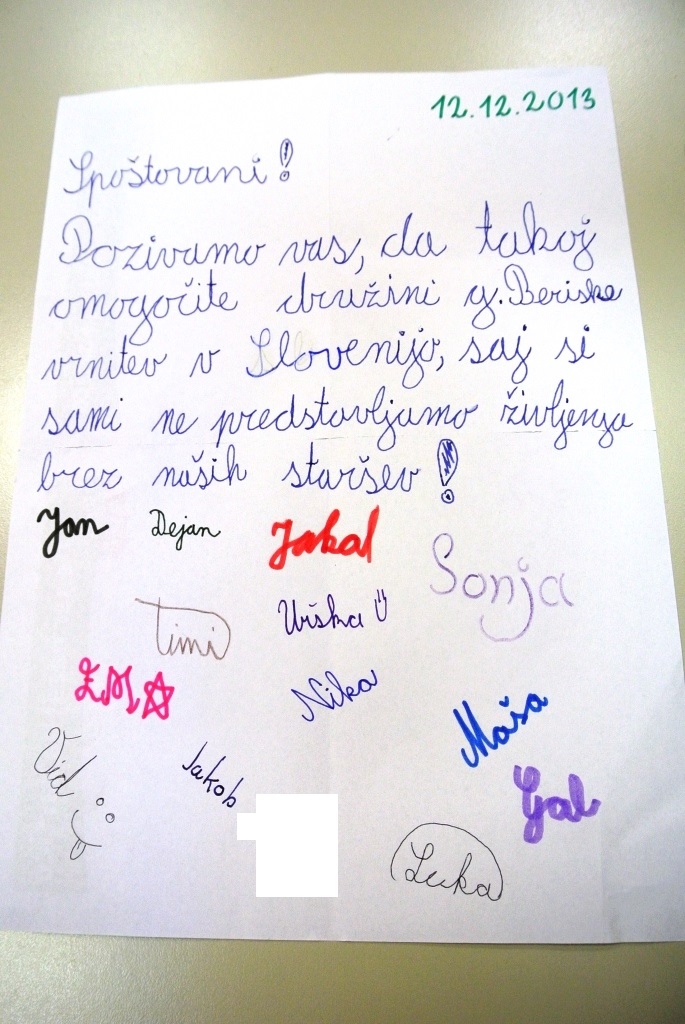 12.12.2013
Spoštovani!
Pozivamo vas, da takoj
omogočite družini g. Beriske
vrnitev v Slovenijo, saj si
sami ne predstavljamo življenja
brez naših staršev!
Jan Dejan Jakal
Sonja
Timi Urška
ZM
Nika
Maša
Vid Jakob
Gal
Luka